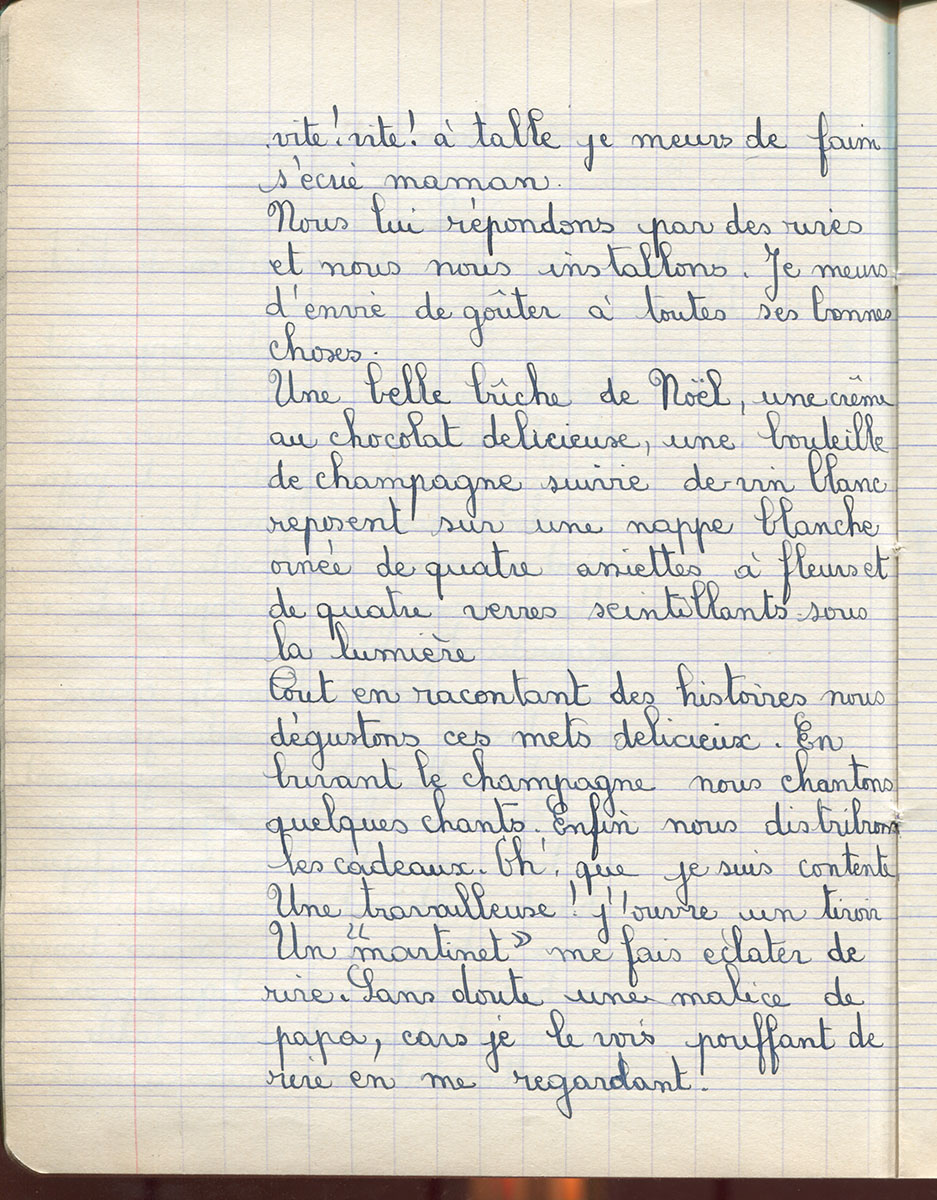 vite! vite! à table je meurs de faim
s'écrie maman.
Nous lui répondons par des rires
et nous nous installons. Je meurs
d'envie de goûter à toutes ses bonnes
choses.
Une belle bûche de Noël, une crême
au chocolat delicieuse, une bouteille
de champagne suivie de vin blanc
reposent sur une nappe blanche
ornée de quatre assiettes à fleurs et
de quatre verres scintillants sous
la lumière
Tout en racontant des histoires nous
dégustons ces mets delicieux. En
buvant le champagne nous chantons
quelques chants. Enfin nous distribuons
les cadeaux. Oh! que je suis contente
Une travailleuse! j'ouvre un tiroir
Un "martinet" me fais eclater de
rire. Sans doute une malice de
papa, cars je le vois pouffant de
rire en me regardant!